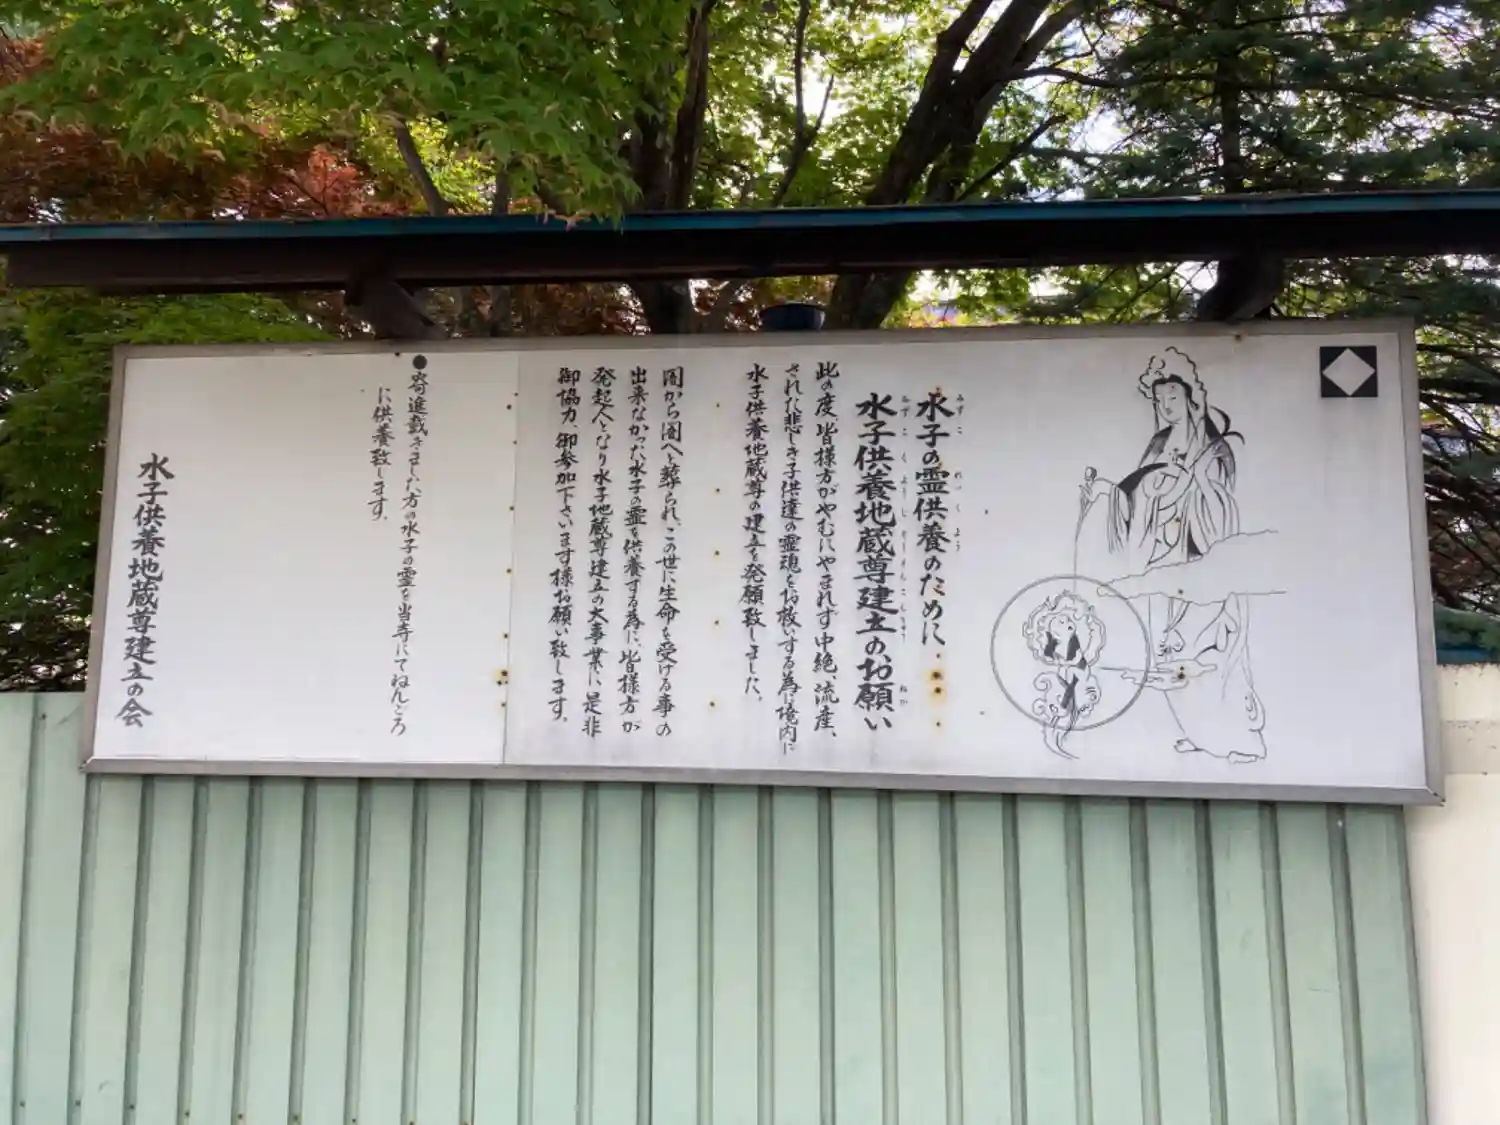 水子の霊供養のために
みずこ れいくよう
水子供養地蔵尊建立のお願い
みずこくようじぞうそんこんりゅう ねが
此の度、皆様方がやむにやまれず中絶、流産、
された悲しき子供達の霊魂をお救いする為に境内に
水子供養地蔵尊の建立を発願致しました。
闇から闇へと葬られ、この世に生命を受ける事の
出来なかった水子の霊を供養する為に、皆様方が
発起人となり水子地蔵尊建立の大事業に是非
御協力、御参加下さいます様お願い致します。
●寄進戴きました方の水子の霊を当寺にてねんごろ
に供養致します。
水子供養地蔵尊建立の会